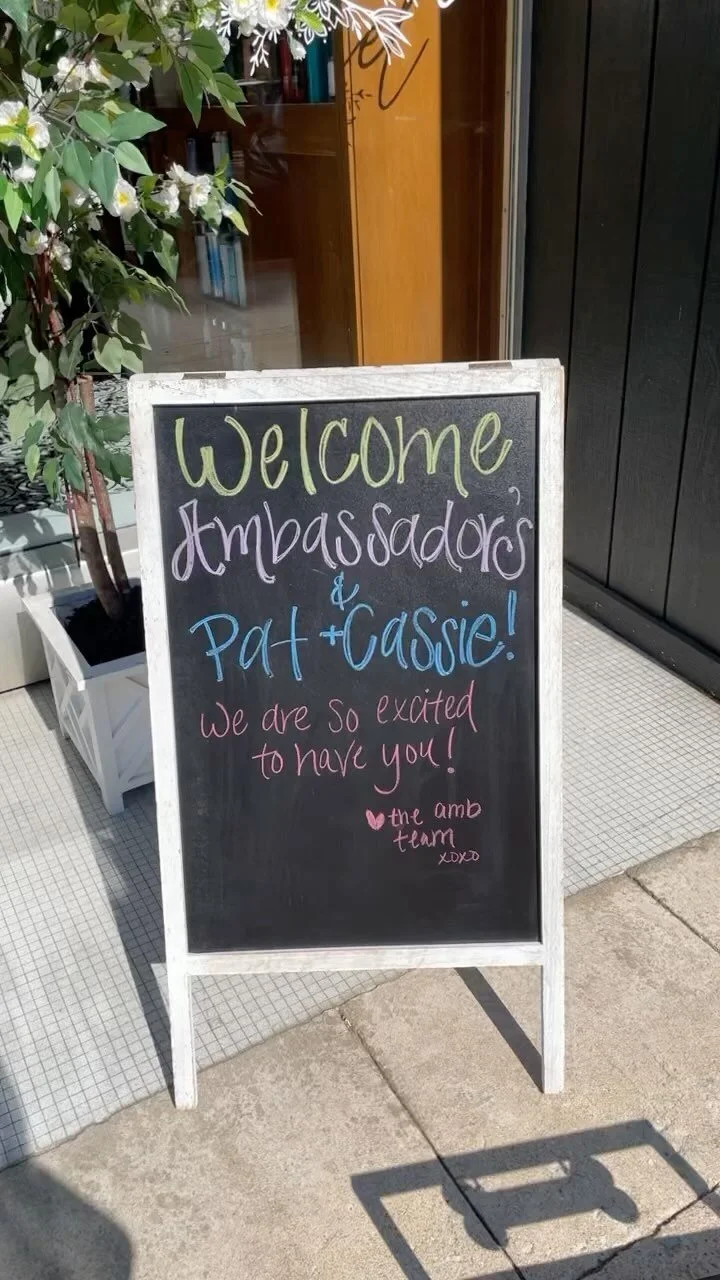 Welcome
Ambassador's
&
Pat + Cassie!
we are so excited
to have you!
the amb
team
xoxo